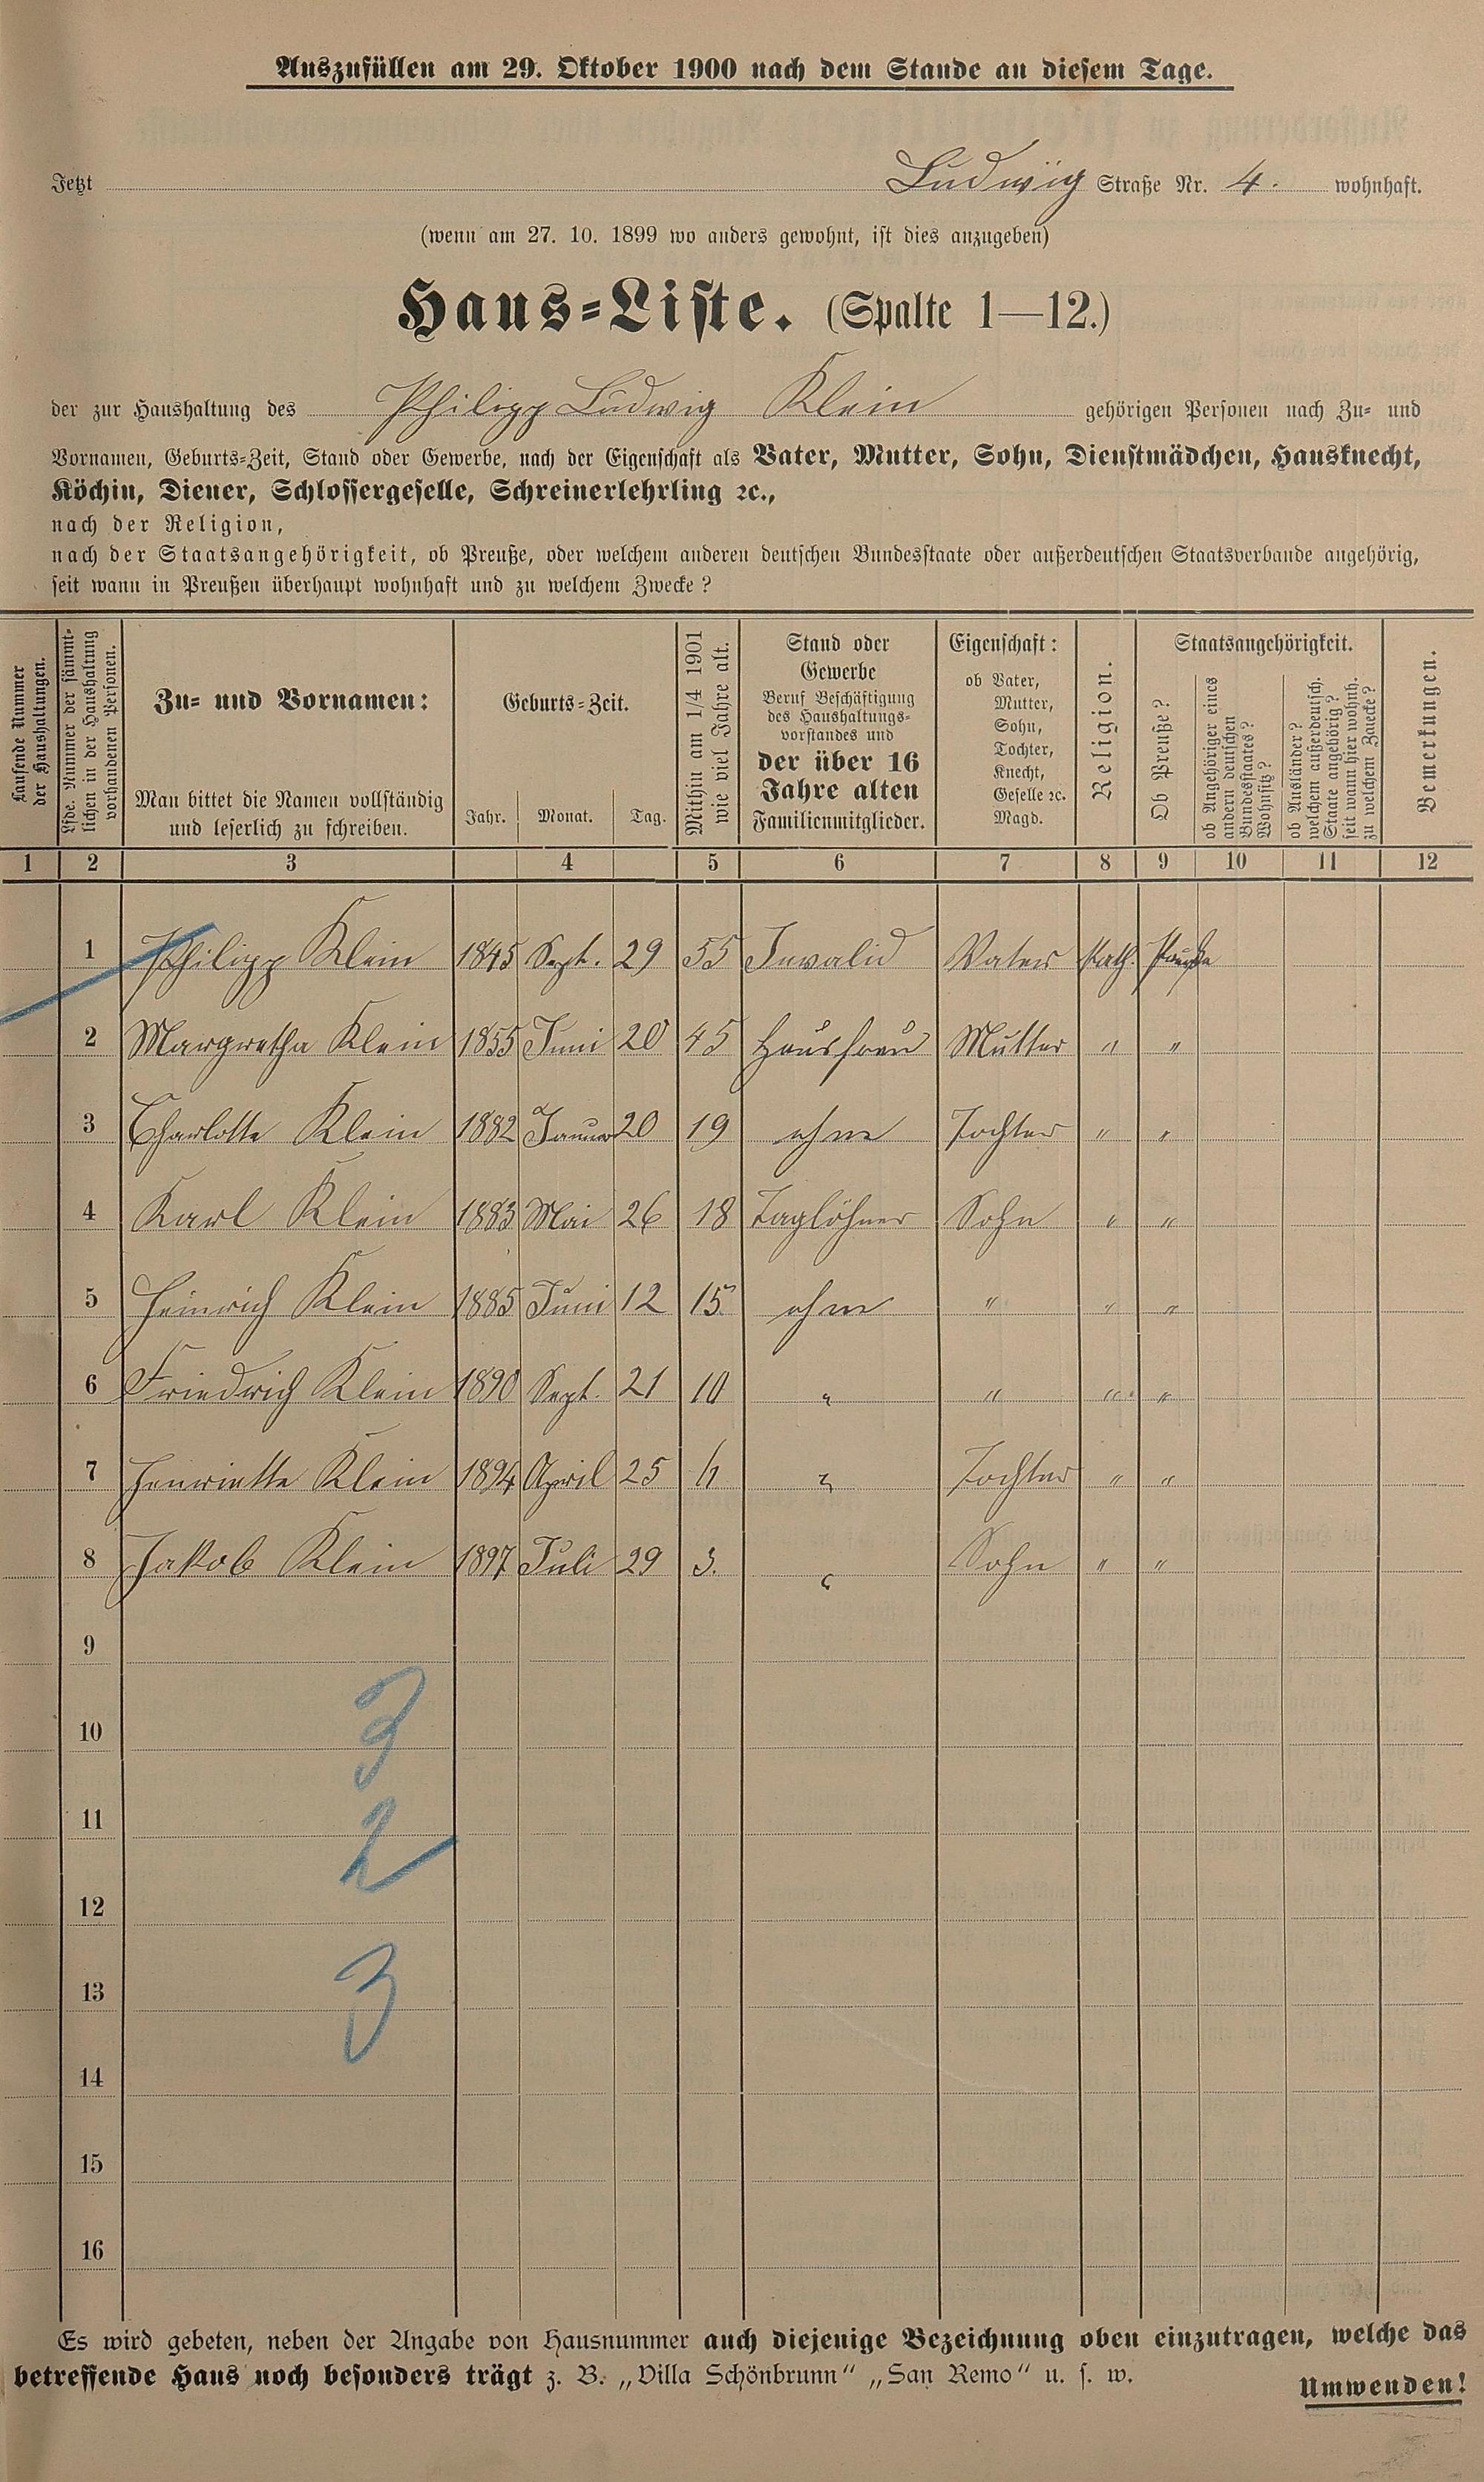 Auszufüllen am 29. Oktober 1900 nach dem Stande an diesem Tage.
Jetzt Ludwig Straße Nr. 4. wohnhaft.
(wenn am 27. 10. 1899 wo anders gewohnt, ist dies anzugeben)
Haus=Liste. (Spalte 1—12.)
der zur Haushaltung des Philipp Ludwig Klein gehörigen Personen nach Zu= und
Vornamen, Geburts=Zeit, Stand oder Gewerbe, nach der Eigenschaft als Vater, Mutter, Sohn, Dienstmädchen, Hausknecht,
Köchin, Diener, Schlossergeselle, Schreinerlehrling ꝛc.,
nach der Religion,
nach der Staatsangehörigkeit, ob Preuße, oder welchem anderen deutschen Bundesstaate oder außerdeutschen Staatsverbande angehörig,
seit wann in Preußen überhaupt wohnhaft und zu welchem Zwecke?
Laufende Nummer
der Haushaltungen.
Lfde. Nummer der sämmt-
lichen in der Haushaltung
vorhandenen Personen.
Zu= und Vornamen:
Man bittet die Namen vollständig
und leserlich zu schreiben.
Geburts=Zeit.
Jahr. Monat. Tag.
Mithin am 1/4 1901
wie viel Jahre alt.
Stand oder
Gewerbe
Beruf Beschäftigung
des Haushaltungs-
vorstandes und
der über 16
Jahre alten
Familienmitglieder.
Eigenschaft:
ob Vater,
Mutter,
Sohn,
Tochter,
Knecht,
Geselle ꝛc.
Magd.
Religion.
Staatsangehörigkeit.
Ob Preuße?
ob Angehöriger eines
andern deutschen
Bundesstaates?
Wohnsitz?
ob Ausländer?
welchem außerdeutsch.
Staate angehörig?
seit wann hier wohnh.
zu welchem Zwecke?
Bemerkungen.
1 2 3 4 5 6 7 8 9 10 11 12
1 Philipp Klein 1845 Sept. 29 55 Invalid Vater Kath. Preuße
2 Margretha Klein 1855 Juni 20 45 Hausfrau Mutter " "
3 Charlotte Klein 1882 Januar 20 19 ohne Tochter " "
4 Karl Klein 1883 Mai 26 18 Taglöhner Sohn " "
5 Heinrich Klein 1885 Juni 12 15 ohne " " "
6 Friedrich Klein 1890 Sept. 21 10 " " " "
7 Henriette Klein 1894 April 25 6 " Tochter " "
8 Jakob Klein 1897 Juli 29 3. " Sohn " "
9
10 3
11 2
12
13 3
14
15
16
Es wird gebeten, neben der Angabe von Hausnummer auch diejenige Bezeichnung oben einzutragen, welche das
betreffende Haus noch besonders trägt z. B. „Villa Schönbrunn“ „San Remo“ u. s. w.
Umwenden!